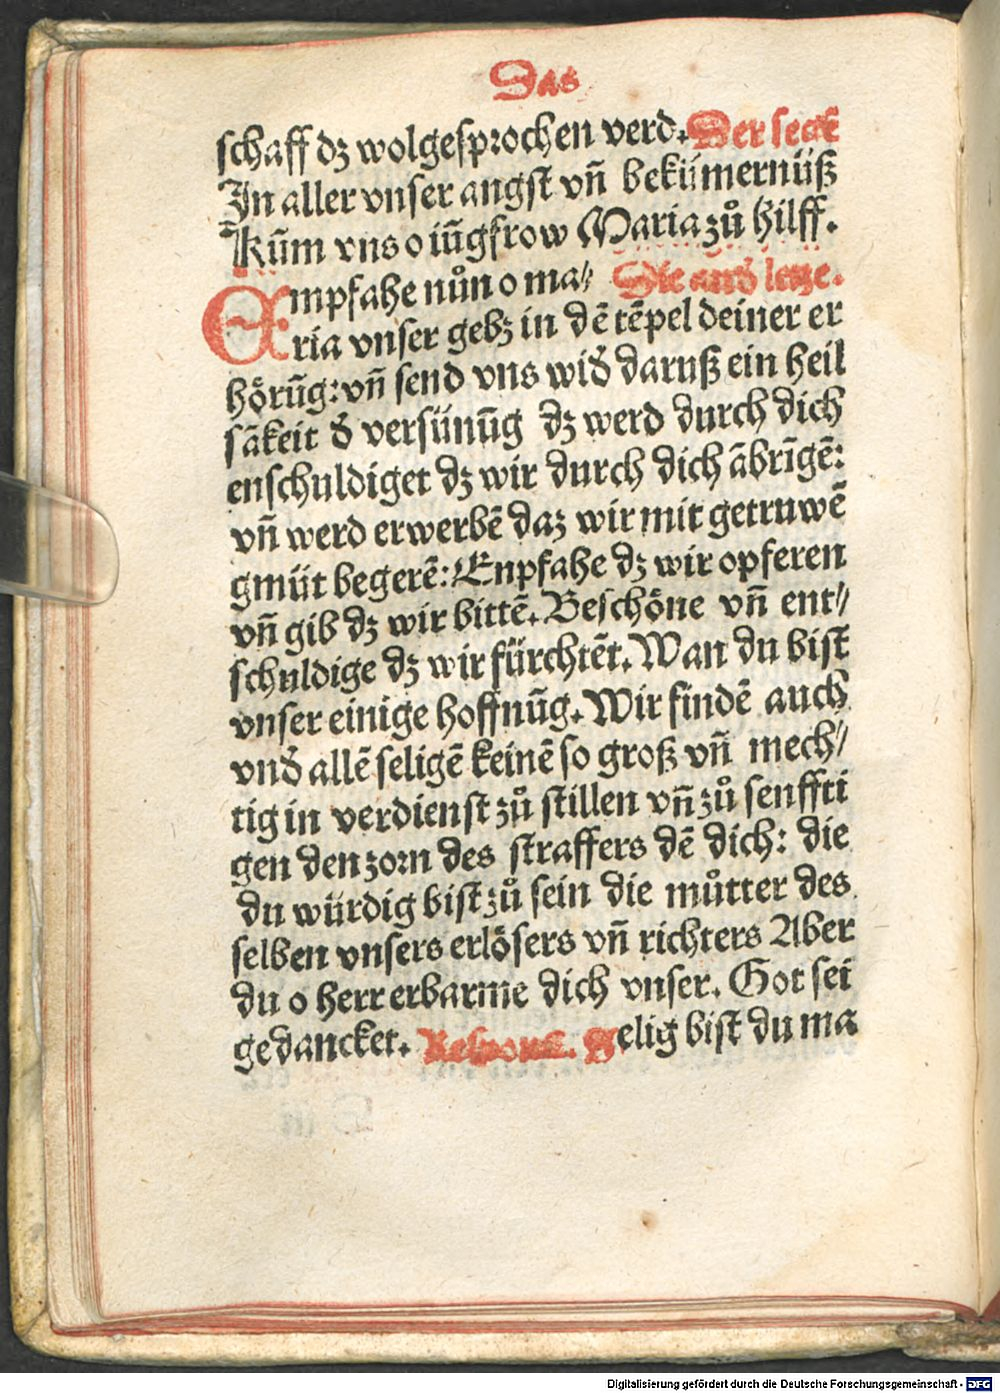 Das
schaff dz wolgesprochen verd. Der segē
In aller vnser angst vñ bekümernüß
Kūm vns o iūgfrow Maria zů hilff.
Empfahe nůn o ma⸗ Die and̾ letze.
ria vnser gebz in dē tēpel deiner er
hörūg: vñ send vns wid̾ daruß ein heil
sākeit d̾ versünūg dz werd durch dich
enschuldiget dz wir durch dich ābrīgē:
vñ werd erwerbē daz wir mit getruwē
gmüt begerē: Enpfahe dz wir opferen
vñ gib dz wir bittē. Beschöne vñ ent⸗
schuldige dz wir fürchtēt. Wan du bist
vnser einige hoffnūg. Wir findē auch
vnd̾ allē seligē keinē so groß vñ mech⸗
tig in verdienst zů stillen vñ zů senffti
gen den zorn des straffers dē dich: die
du würdig bist zů sein die můtter des
selben vnsers erlösers vñ richters Aber
du o herr erbarme dich vnser. Got sei
gedancket. Respons. Selig bist du ma
Digitalisierung gefördert durch die Deutsche Forschungsgemeinschaft - DFG